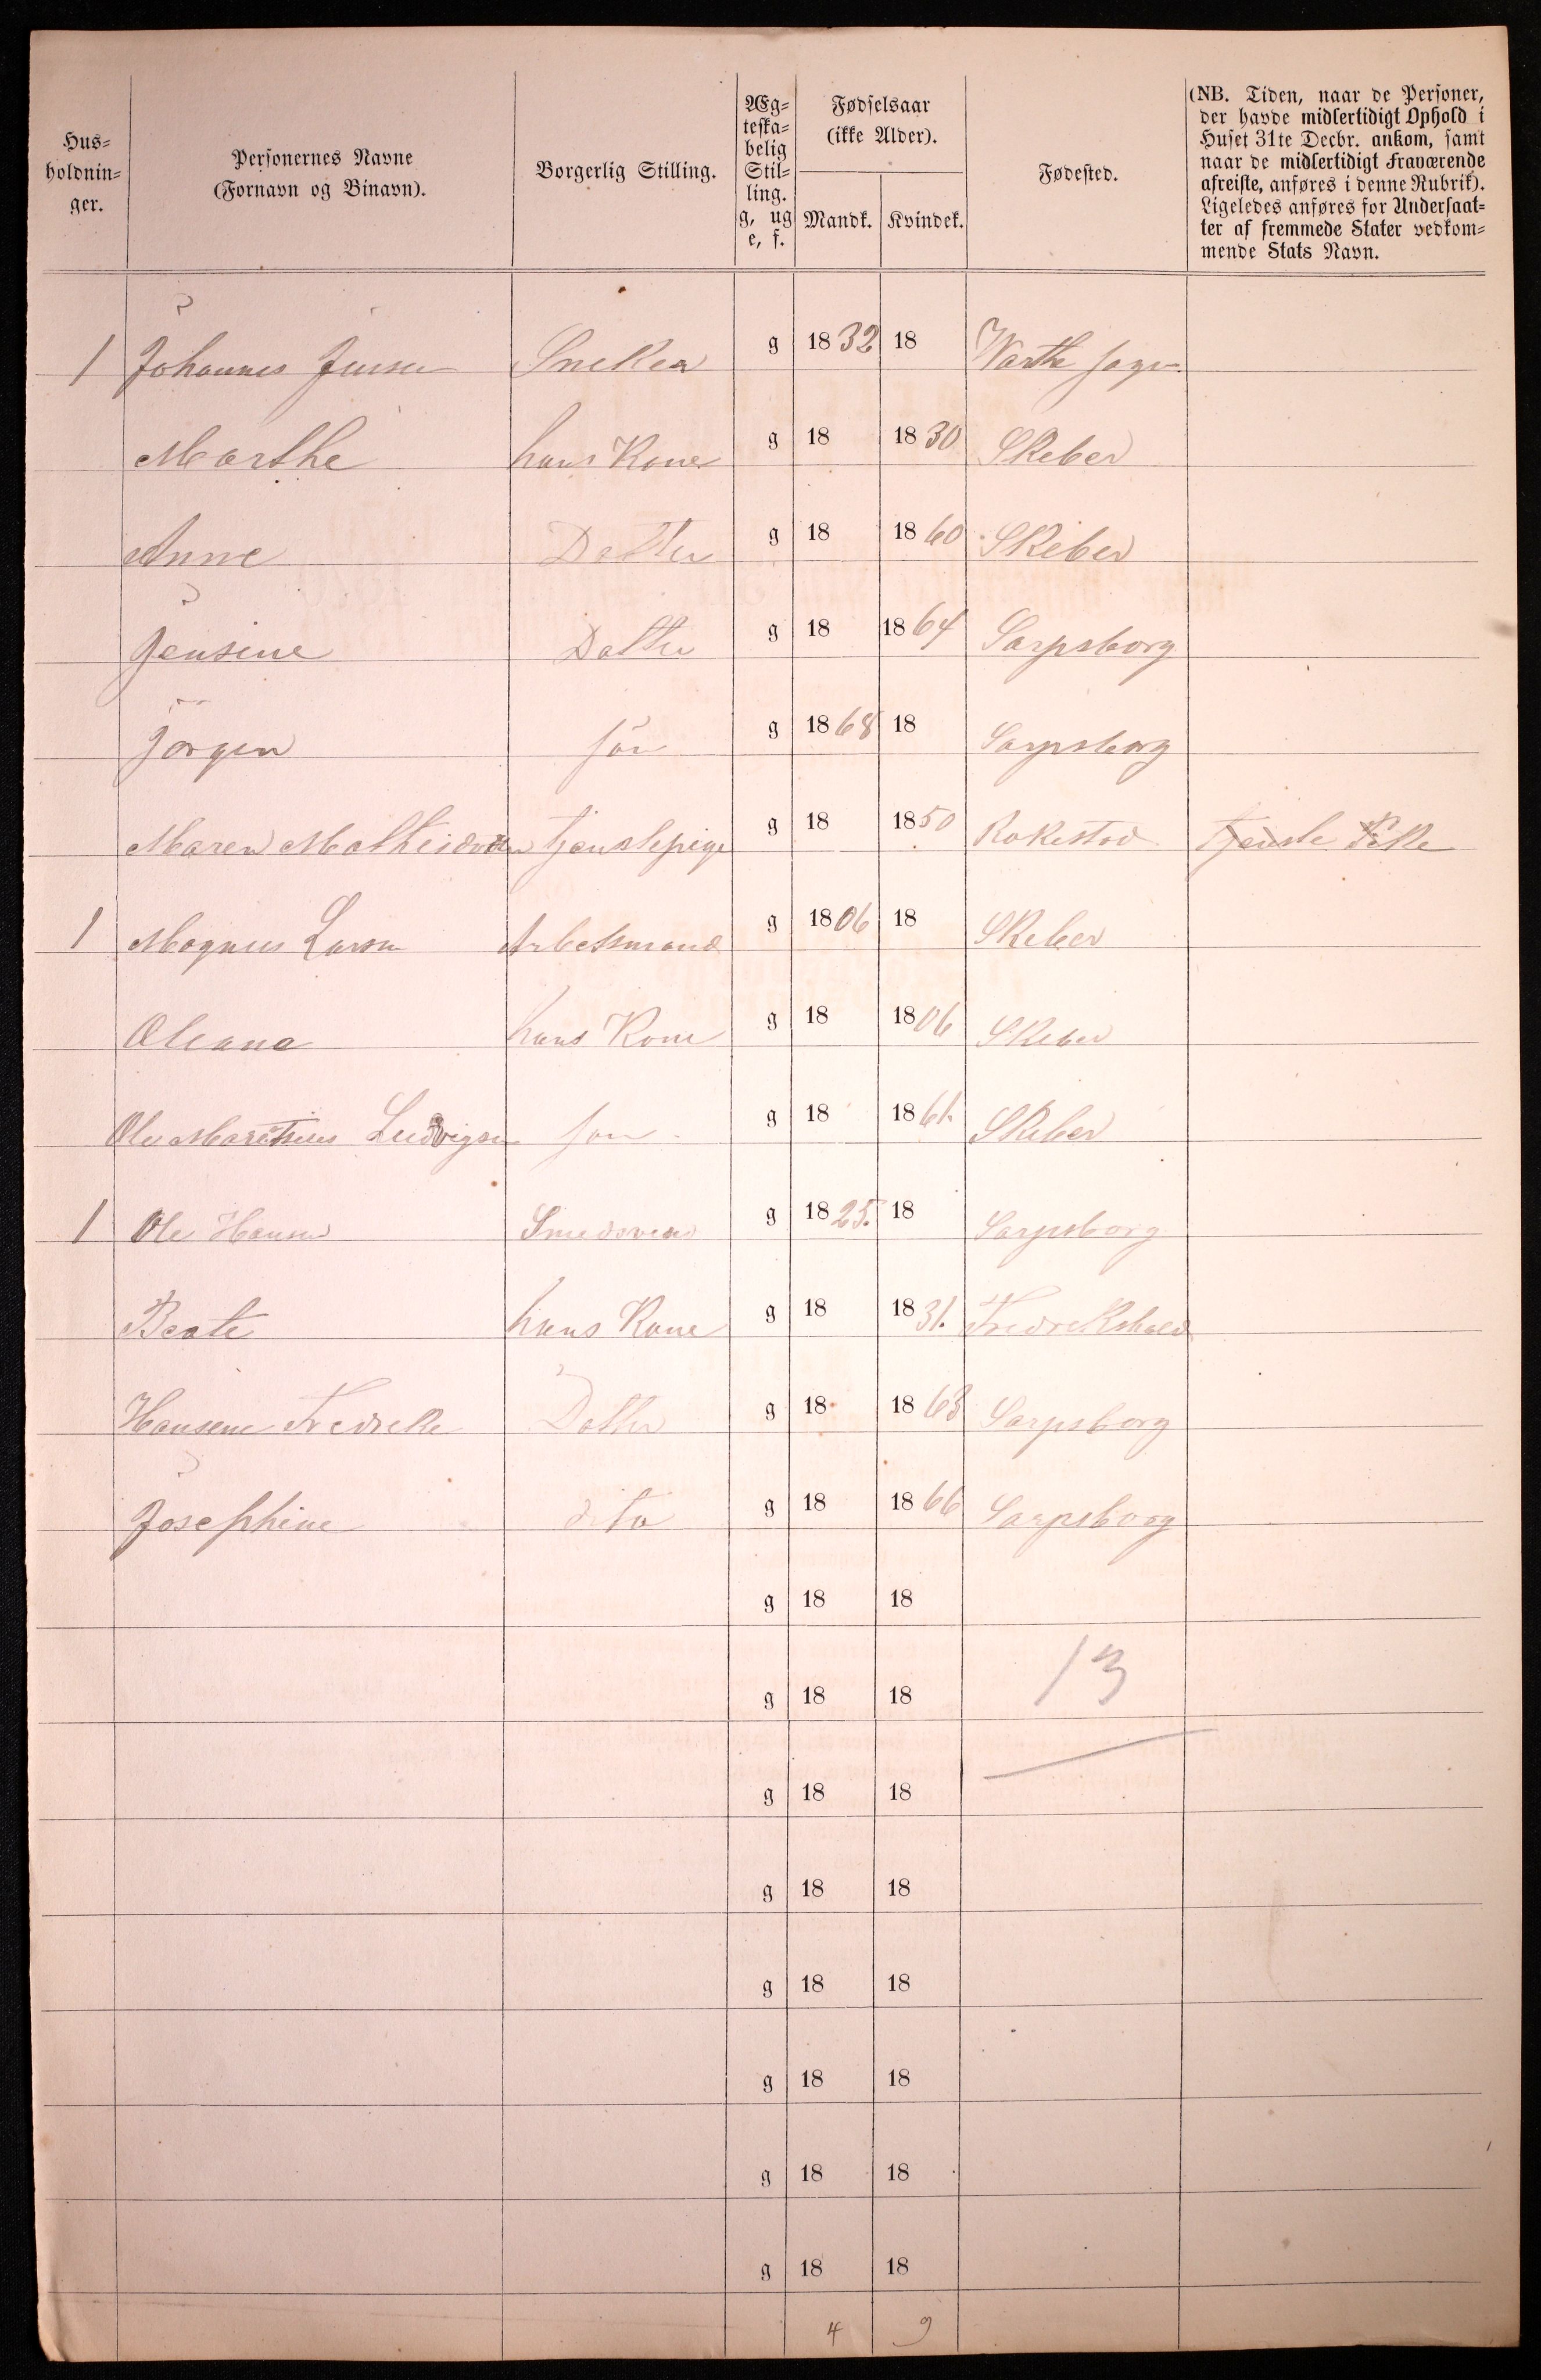 Hus-
holdnin-
ger.
Personernes Navne
(Fornavn og Binavn).
Borgerlig Stilling.
Æg-
teska-
belig
Stil-
ling.
g, ug
e, f.
Fødselsaar
(ikke Alder).
Mandk. Kvindek.
Fødested.
(NB. Tiden, naar de Personer,
der havde midlertidigt Ophold i
Huset 31te Decbr. ankom, samt
naar de midlertidigt Fraværende
afreiste, anføres i denne Rubrik).
Ligeledes anføres for Undersaat-
ter af fremmede Stater vedkom-
mende Stats Navn.
1 Johannes Jensen Sneker g 1832 18 Warthe sogn
Marthe hans Kone g 18 1830 Skeber
Anne Datter g 18 1860 Skeber
Jensine Datter g 18 1864 Sarpsborg
Jörgen Sön g 1868 18 Sarpsborg
Maren Mathisdatter tjenstepige g 18 1850 Rokestad tjenste
1 Magnus Larsen Arbetsmand g 1806 18 Skeber
Oleana hans Kone g 18 1806 Skeber
Ole Ludvigsen sön g 18 1861. Skeber
1 Ole Hansen Smedsven g 1825. 18 Sarpsborg
Beate hans Kone g 18 1831. Fredrekshald
Hansene Fredreke Datter g 18 1863 Sarpsborg
Josephine dito g 18 1866 Sarpsborg
g 18 18
g 18 18 13
g 18 18
g 18 18
g 18 18
g 18 18
g 18 18
g 18 18
4 9